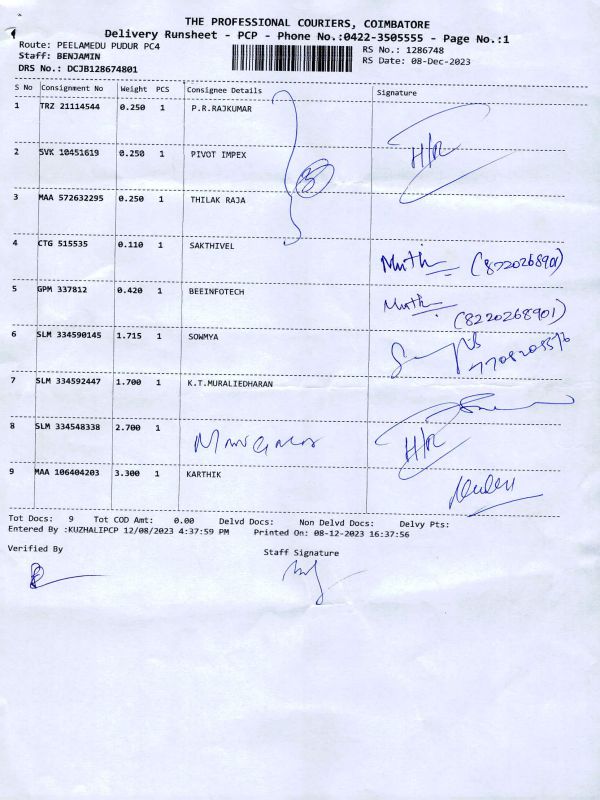 THE PROFESSIONAL COURIERS, COIMBATORE
Delivery Runsheet - PCP - Phone No.:0422-3505555 - Page No.:1
Route: PEELAMEDU PUDUR PC4 RS No.: 1286748
Staff: BENJAMIN RS Date: 08-Dec-2023
DRS No.: DCJB128674801
S No Consignment No Weight PCS Consignee Details Signature
1 TRZ 21114544 0.250 1 P.R.RAJKUMAR
2 SVK 10451619 0.250 1 PIVOT IMPEX H/R
3 MAA 572632295 0.250 1 THILAK RAJA
4 CTG 515535 0.110 1 SAKTHIVEL Muth (8220268901)
5 GPM 337812 0.420 1 BEEINFOTECH Muth (8220268901)
6 SLM 334590145 1.715 1 SOWMYA
7 SLM 334592447 1.700 1 K.T.MURALIEDHARAN
8 SLM 334548338 2.700 1 H/R
9 MAA 106404203 3.300 1 KARTHIK
Tot Docs: 9 Tot COD Amt: 0.00 Delvd Docs: Non Delvd Docs: Delvy Pts:
Entered By :KUZHALIPCP 12/08/2023 4:37:59 PM Printed On: 08-12-2023 16:37:56
Verified By Staff Signature